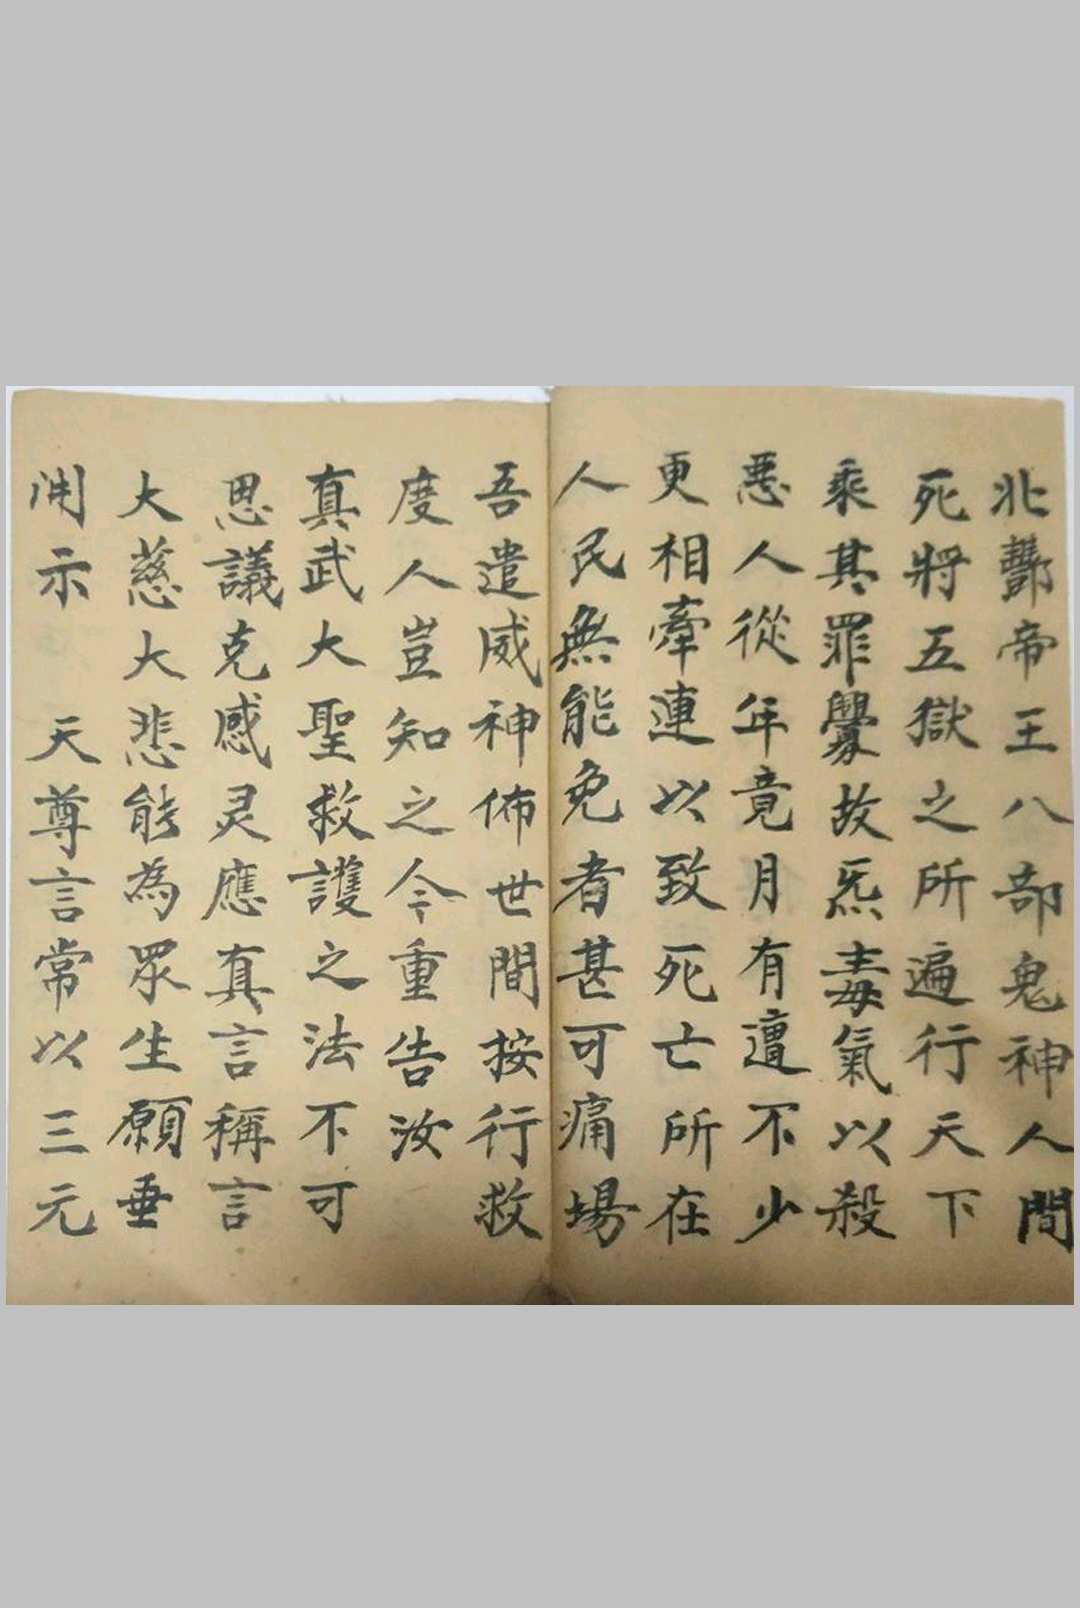 北酆帝王八部鬼神人間
死將五獄之所遍行天下
乘其罪釁故炁毒氣以殺
悪人從年竟月有邅不少
更相牽連以致死亡所在
人民無能免者甚可痛場
吾遣威神佈世間按行救
度人豈知之今重告汝
真武大聖救護之法不可
思議克感灵應真言稱言
大慈大悲能為眾生願垂
開示　天尊言常以三元